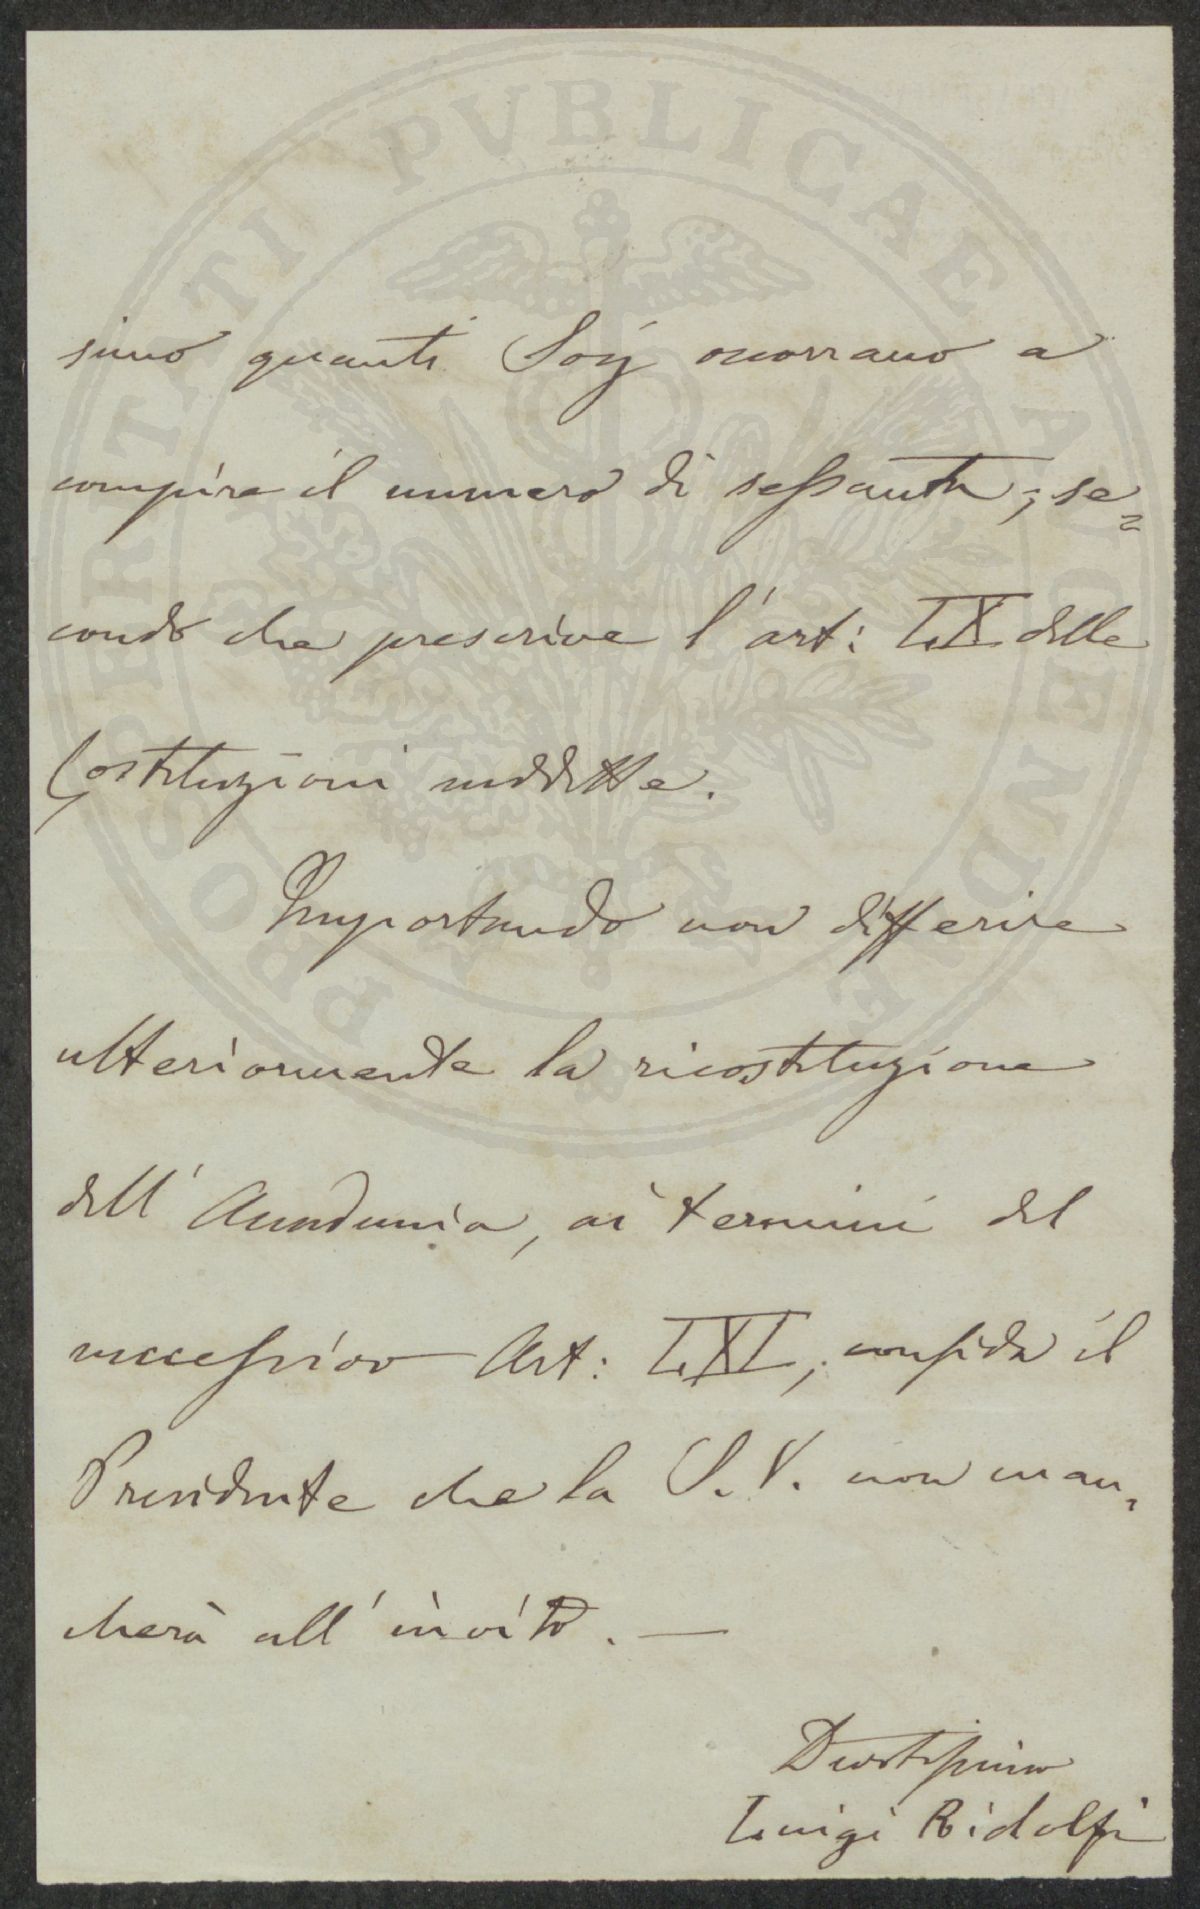 simo quanti Socij occorrano a
compire il numero di sessanta, se=
condo che prescrive l'art: LX delle
Costituzioni suddette.
Importando non differire
ulteriormente la ricostituzione
dell'Accademia, ai termini del
successivo Art: LXI, confida il
Presidente che la S. V. non man=
cherà all'invito. —
Devotissimo
Luigi Ridolfi
PROSPERITATI PVBLICAE AVGENDAE